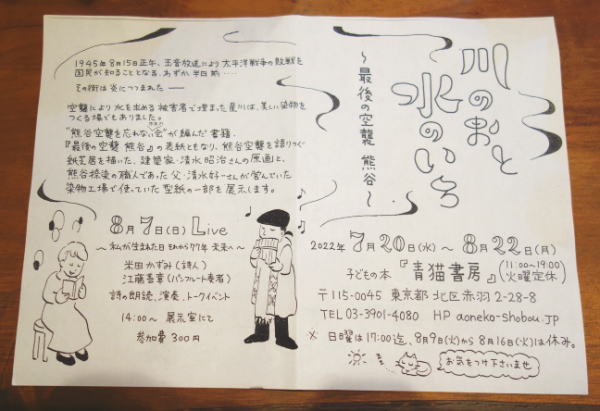 川のおと
水のいろ
〜最後の空襲 熊谷〜
1945年8月15日正午、玉音放送により太平洋戦争の敗戦を
国民が知ることとなる、わずか半日前……
その街は炎につつまれた――
空襲により水を求める被害者で埋まった星川は、美しい染物を
つくる場でもありました。
"熊谷空襲を忘れない会"が編んだ書籍、
『最後の空襲 熊谷』の表紙ともなり、熊谷空襲を語りつぐ
紙芝居を描いた、建築家・清水昭治さんの原画と、
熊谷捺染の職人であった父・清水好一さんが営んでいた
染物工場で使っていた型紙の一部を展示します。
8月7日(日) Live
〜私が生まれた日 それから77年 未来へ〜
米田かずみ(詩人)
江藤善章(パンフルート奏者)
詩の朗読、演奏、トークイベント
14:00〜 展示室にて
参加費 300円
2022年 7月20日(水)〜8月22日(月)
子どもの本『青猫書房』(11:00〜19:00)
火曜定休
〒115-0045 東京都北区赤羽2-28-8
TEL 03-3901-4080 HP aoneko-shobou.jp
※ 日曜は17:00迄、8月9日(火)から8月16日(火)は休み。
お気をつけ下さいませ